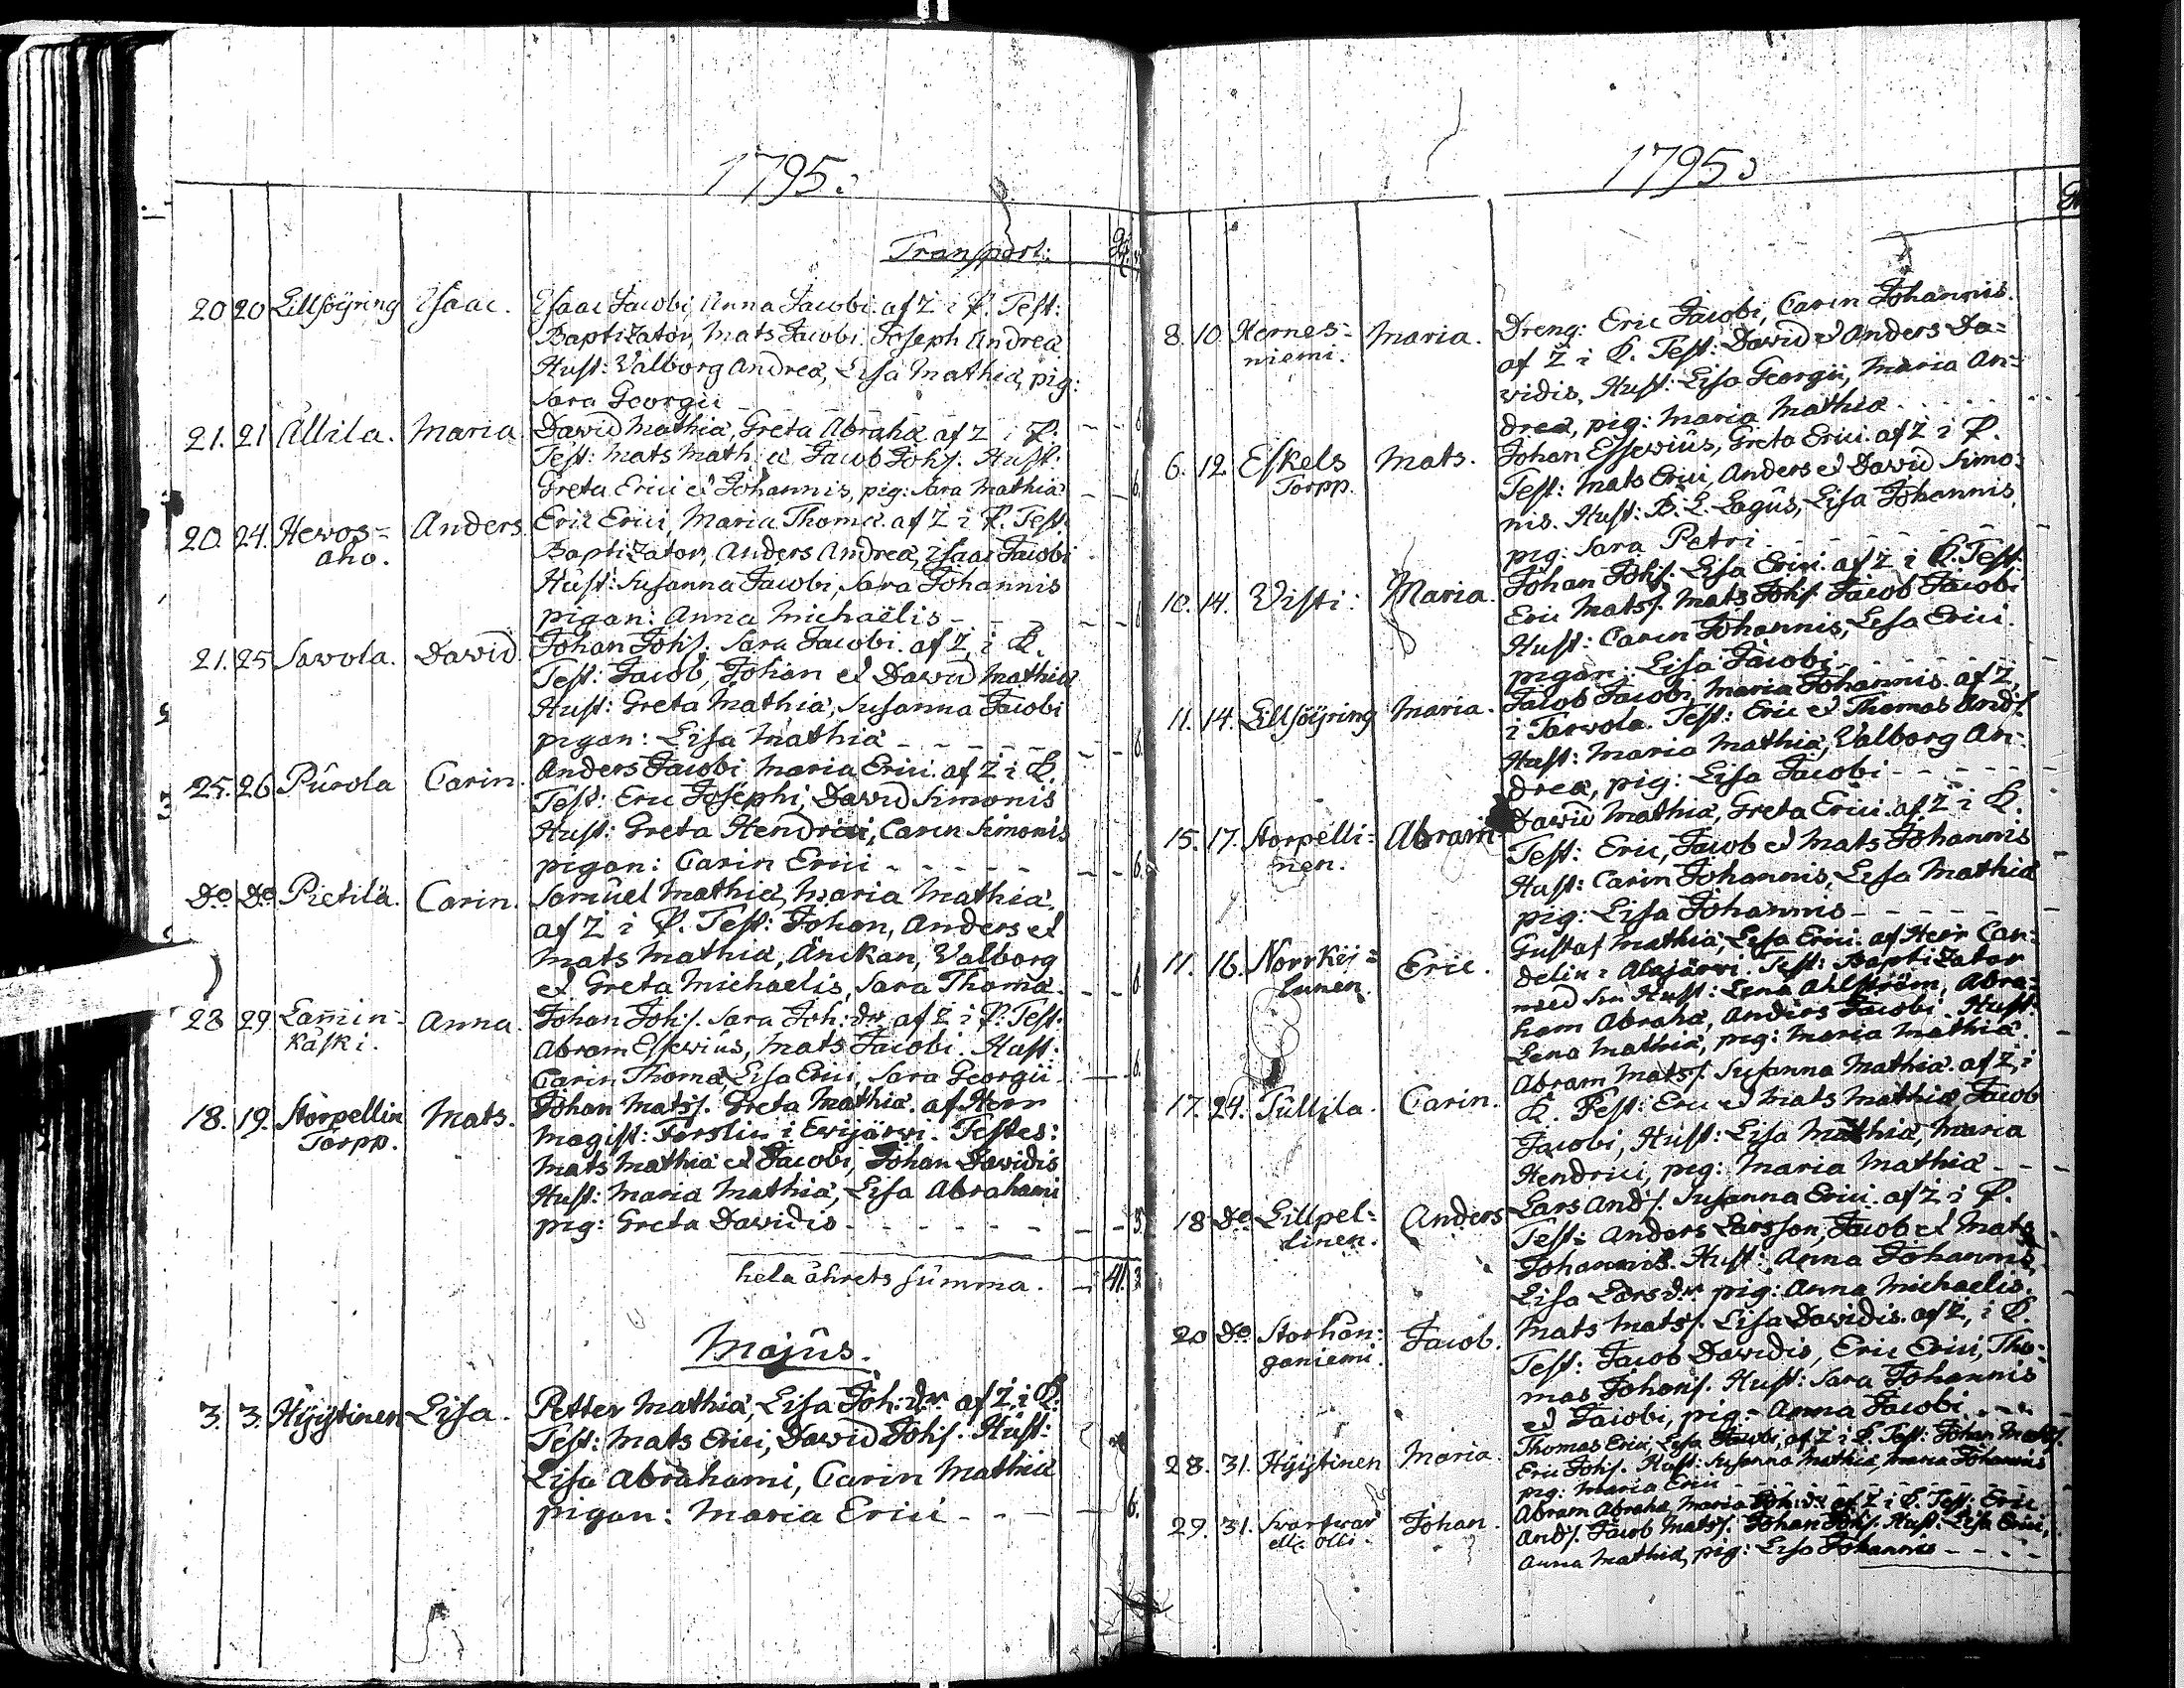 1795.
Transport:
20 20 Lillsöÿring Isaac. Isaac Jacobi, Anna Jacobi. af Z i P. Test:
Baptizator, Mats Jacobi. Joseph Andreæ
Hust: Walborg Andreæ, Lisa Mathiæ, pig:
Sara Georgii
21. 21 Allila. Maria. David Mathiæ, Greta Abrahæ. af Z i P.
Test: Mats Mathiæ Jacob Johs. Hust:
Greta Erici et Johannis, pig: Sara Mathiæ 6.
20. 24. Hewos= Anders. Eric Erici, Maria Thomæ. af Z i P. Test:
aho. Baptizator, Anders Andreæ, Isaac Jacobi
Hust: Susanna Jacobi, Sara Johannis
pigan: Anna Michaëlis
21. 25 Savola. David. Johan Johs. Sara Jacobi. af Z. i P.
Test: Jacob, Johan et David Mathiæ
Hust: Greta Mathiæ, Susanna Jacobi
pigan: Lisa Mathiæ 6.
25. 26 Pûrola Carin. Anders Jacobi Maria Erici. af Z i P.
Test: Eric Josephi, David Simonis
Hust: Greta Hendrici, Carin Simonis
pigan: Carin Erici 6.
Do Do Pietilä. Carin. Samuel Mathiæ, Maria Mathiæ.
af Z i P. Test: Johan, Anders et
Mats Mathiæ, Änckan, Walborg
et Greta Michaelis, Sara Thomæ. 6
28 29. Lamin= Anna. Johan Johs. Sara Joh:dr. af Z i P. Test:
käski. Abram Essewius, Mats Jacobi. Hust:
Carin Thomæ, Lisa Erici, Sara Georgii 6.
18. 19. Storpellin Mats. Johan Matss. Greta Mathiæ. af Herr
Torpp. Magist: Forslin i Ewijärwi. Testes:
Mats Mathiæ et Jacobi, Johan Davidis
Hust: Maria Mathiæ, Lisa Abrahami
pig: Greta Davidis 3.
hela åhrets summa. 41. 3
Majûs.
3. 3. Hÿÿtinen Lisa. Petter Mathiæ, Lisa Joh:dr. af Z. i P.
Test: Mats Erici, David Johs. Hust:
Lisa Abrahami, Carin Mathiæ
pigan: Maria Erici 6.
1795.
8. 10. Hernes= Maria. Dreng: Eric Jacobi, Carin Johannis.
niemi. af Z i P. Test: David et Anders Da=
vidis, Hust: Lisa Georgii, Maria An=
dreæ, pig: Maria Mathiæ
6. 12. Eskels Mats. Johan Essewius, Greta Erici. af Z i P.
Torpp. Test: Mats Erici, Anders et David Simo=
nis. Hust: B. L. Lagûs, Lisa Johannis
pig: Sara Petri
10. 14. Visti: Maria. Johan Johs. Lisa Erici. af Z i P. Test:
Eric Matss. Mats Johs. Jacob Jacobi
Hust: Carin Johannis, Lisa Erici.
pigan: Lisa Jacobi
11. 14. Lillsöÿring Maria. Jacob Jacobi, Maria Johannis. af Z,
i Terwola. Test: Eric et Thomas Ands.
Hust: Maria Mathiæ, Walborg An=
dreæ, pig: Lisa Jacobi
15. 17. Storpelli= Abram David Mathiæ, Greta Erici. af Z i P.
nen. Test: Eric, Jacob et Mats Johannis
Hust: Carin Johannis, Lisa Mathiæ
pig: Lisa Johannis
11. 16. Norrkÿ= Eric. Gustaf Mathiæ, Lisa Erici. af Herr Can=
lanen. delin i Alajärvi. Test: Baptizator
med sin Hust: Lena Ahlström, Abra=
ham Abrahæ, Anders Jacobi. Hust:
Lena Mathiæ, pig: Maria Mathiæ
17. 24. Tullila. Carin. Abram Matss. Susanna Mathiæ. af Z, i
P. Test: Eric et Mats Mathiæ Jacob
Jacobi, Hust: Lisa Mathiæ, Maria
Hendrici, pig: Maria Mathiæ
18 Do. Lillpel= Anders Lars Ands. Susanna Erici. af Z i P.
linen. Test: Anders Larsson, Jacob et Mats
Johannis. Hust: Anna Johannis,
Lisa Larsdr. pig: Anna Michaelis.
20 Do Storhon= Jacob. Mats Matss. Lisa Davidis. af Z, i P.
ganiemi. Test: Jacob Davidis, Eric Erici, Tho=
mas Johans. Hust: Sara Johannis
et Jacobi, pig: Anna Jacobi
28. 31. Hÿÿtinen Maria. Thomas Erici, Lisa Jacobi, af Z i P. Test: Johan Matss.
Eric Johs. Hust: Susanna Mathiæ, Maria Johannis
pig: Maria Erici
29. 31. Svartwar Johan. Abram Abrahæ, Maria Joh:dr. af Z i P. Test: Eric
ell. Olli. Ands. Jacob Matss. Johan Johs. Hust: Lisa Erici,
Anna Mathiæ, pig: Lisa Johannis